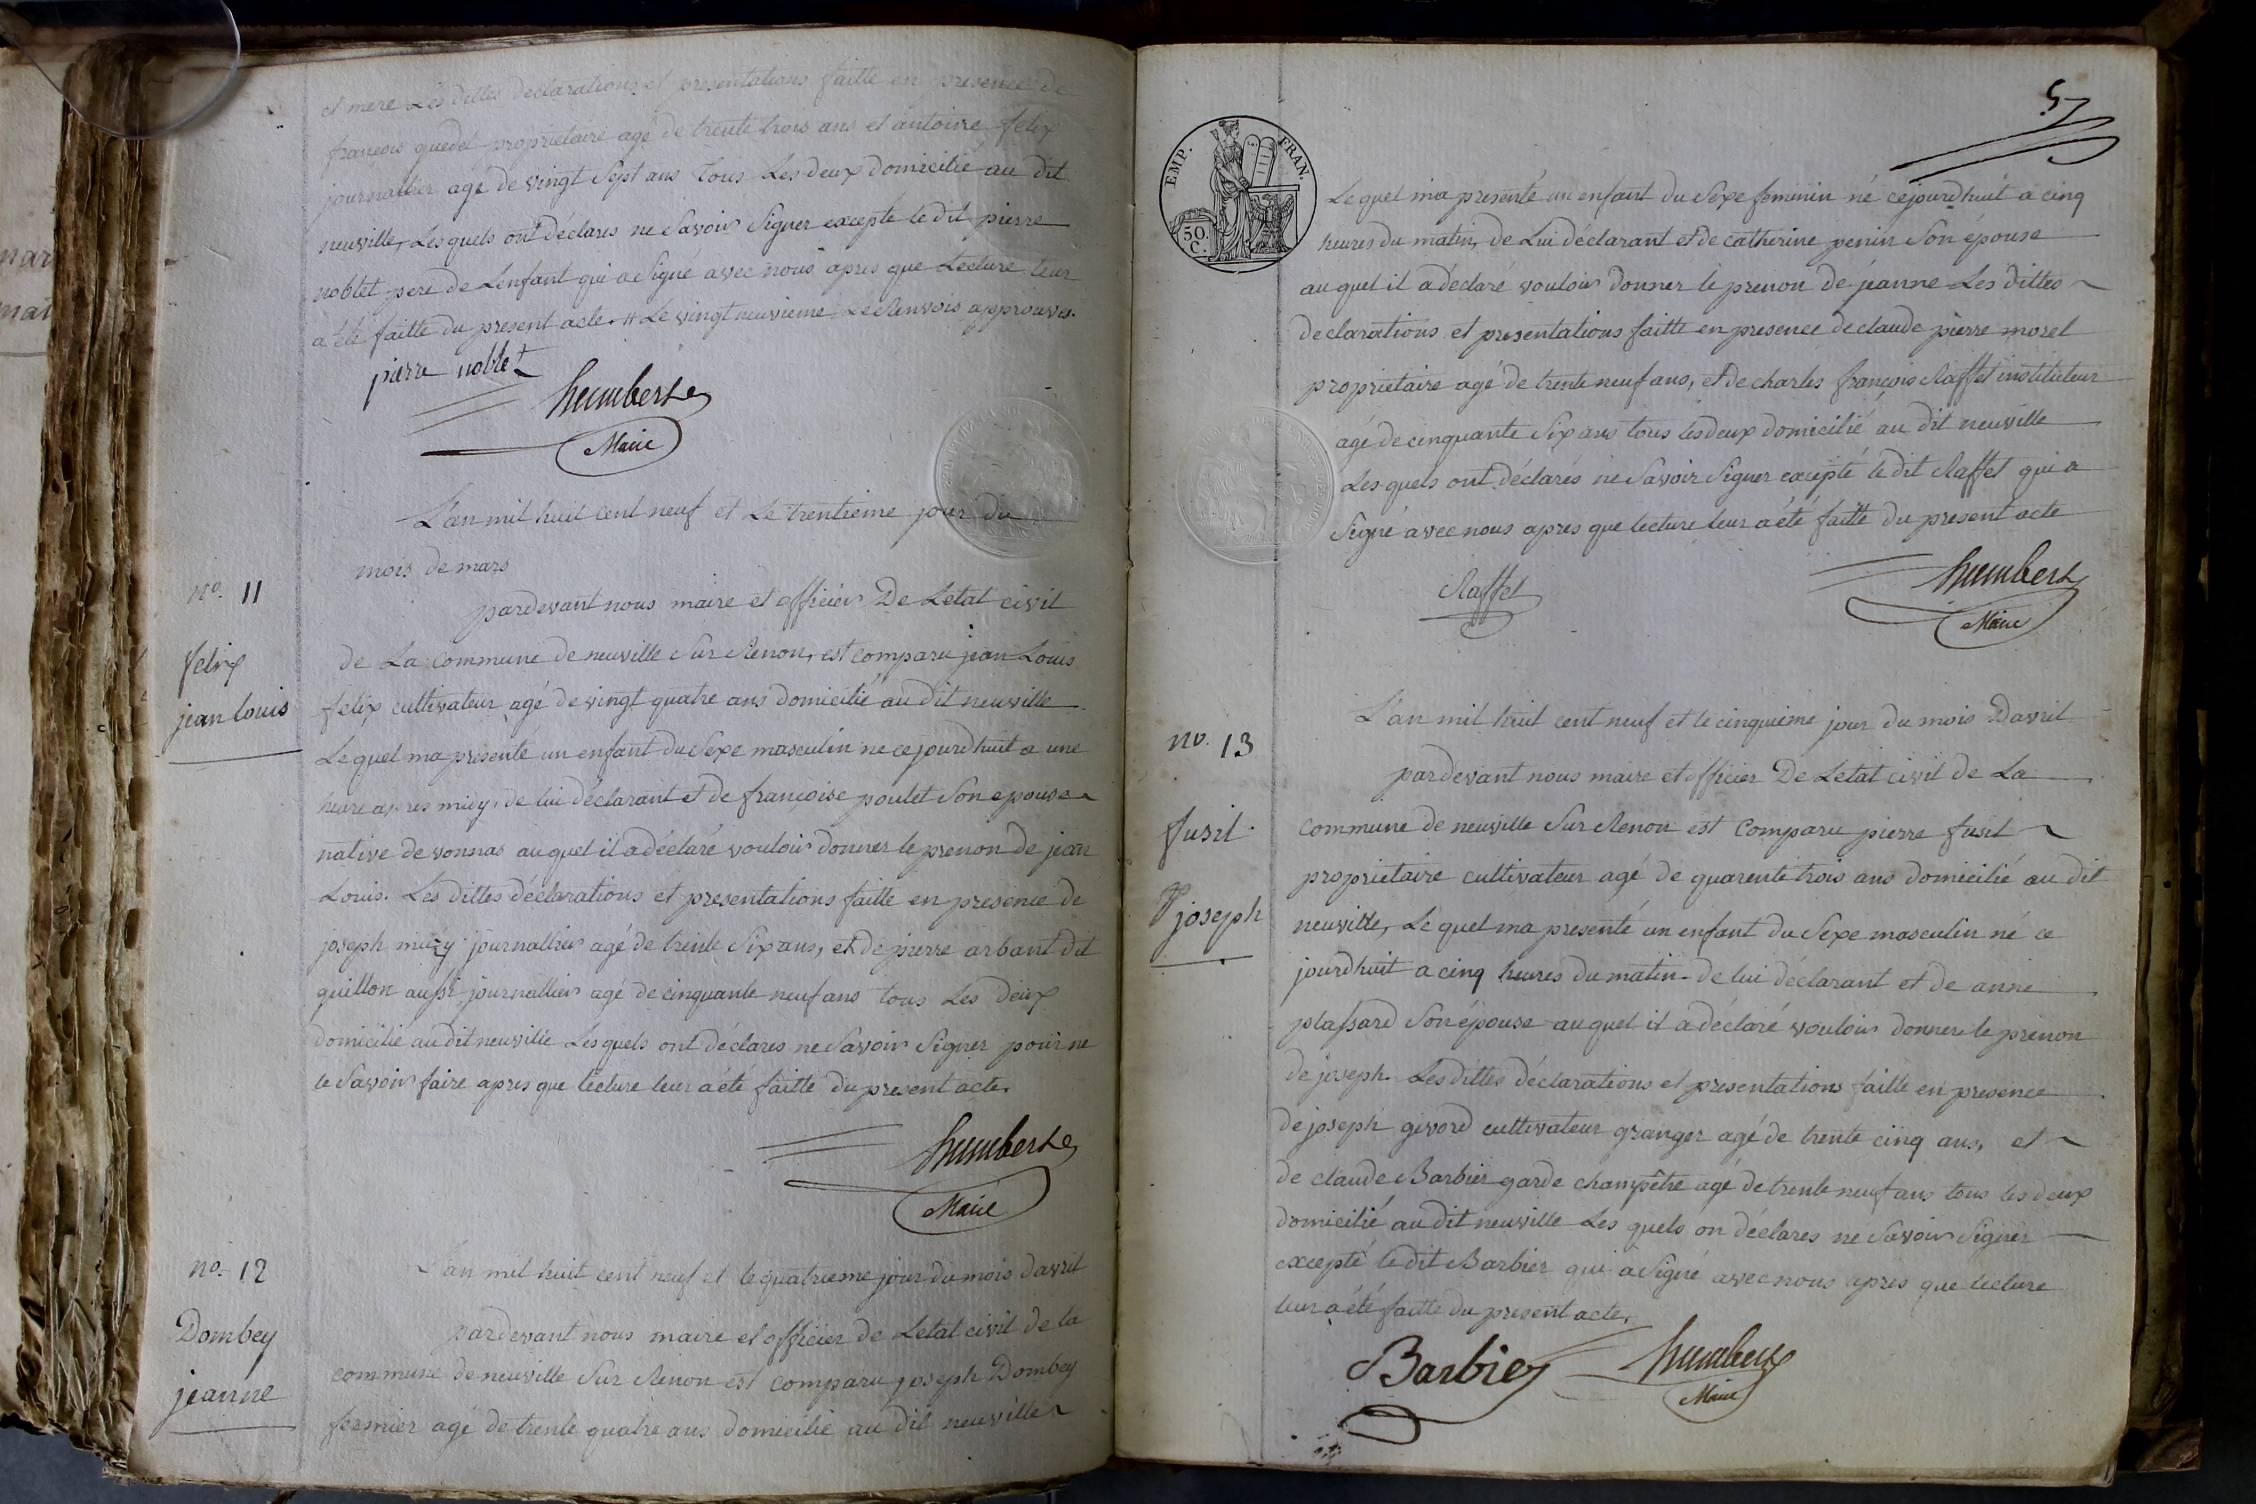 et mere Les dittes declarations et presentations faitte en presence de
françois quedet proprietaire agé de trente trois ans et antoine felix
journallier agé de vingt Sept ans tous Les deux domicilié au dit
neuville, Lesquels ont déclares ne Savoir Signer excepte le dit pierre
noblet pere de Lenfant qui a Signé avec nous apres que Lecture leur
a été faitte du present acte. # Le vingt neuvieme Le Renvois approuvés.
pierre noblet
humbert
Maire
L'an mil huit cent neuf et Le trentieme jour du
mois de mars
no. 11
felix
jean louis
pardevant nous maire et officier De Letat civil
de La commune de neuville Sur Renon, est comparu jean Louis
felix cultivateur agé de vingt quatre ans domicilié au dit neuville
Le quel ma presenté un enfant du Sexe masculin ne ce jourdhuit a une
heure apres midy, de lui déclarant et de françoise poulet Son epouse
native de vonnas au quel il a déclaré vouloir donner le prenon de jean
Louis. Les dittes déclarations et presentations faitte en presence de
joseph muzy journallier agé de trente Six ans, et de pierre arbant dit
quillon aussi journallier agé de cinquante neuf ans tous Les deux
domicilié au dit neuville Lesquels ont déclares ne Savoir Signer pour ne
le Savoir faire apres que lecture leur a été faitte du present acte.
humbert
Maire
no. 12
Dombey
jeanne
L'an mil huit cent neuf et le quatrieme jour du mois davril
pardevant nous maire et officier de Letat civil de la
commune de neuville Sur Renon est comparu joseph Dombey
fermier agé de trente quatre ans domicilié au dit neuville
5
EMP. FRAN.
50.
C.
Le quel ma presenté un enfant du Sexe feminin né cejourdhuit a cinq
heures du matin, de Lui déclarant et de catherine penin Son épouse
au quel il a déclaré vouloir donner le prenon de jeanne Les dittes
declarations et presentations faitte en presence de claude pierre morel
proprietaire agé de trente neuf ans, et de charles françois Raffet instituteur
agé de cinquante Six ans tous les deux domicilié au dit neuville
Les quels ont déclarés ne Savoir Signer excepté le dit Raffet qui a
Signé avec nous apres que lecture leur a été faitte du present acte
Raffet
humbert
Maire
no. 13
fusil
joseph
L'an mil huit cent neuf et le cinquieme jour du mois Davril
pardevant nous maire et officier De Letat civil de La
commune de neuville Sur Renon est Comparu pierre fusil
proprietaire cultivateur agé de quarente trois ans domicilié au dit
neuville, Le quel ma presenté un enfant du Sexe masculin né ce
jourdhuit a cinq heures du matin de lui déclarant et de anne
plassard Son épouse au quel il a déclaré vouloir donner le prénon
de joseph. Les dittes déclarations et presentations faitte en presence
de joseph givord cultivateur granger agé de trente cinq ans, et
de claude Barbier garde champêtre agé de trente neuf ans tous les deux
domicilié au dit neuville Les quels on déclares ne Savoir Signer
excepté le dit Barbier qui a Signé avec nous apres que lecture
leur a été faitte du present acte.
Barbier
humbert
Maire